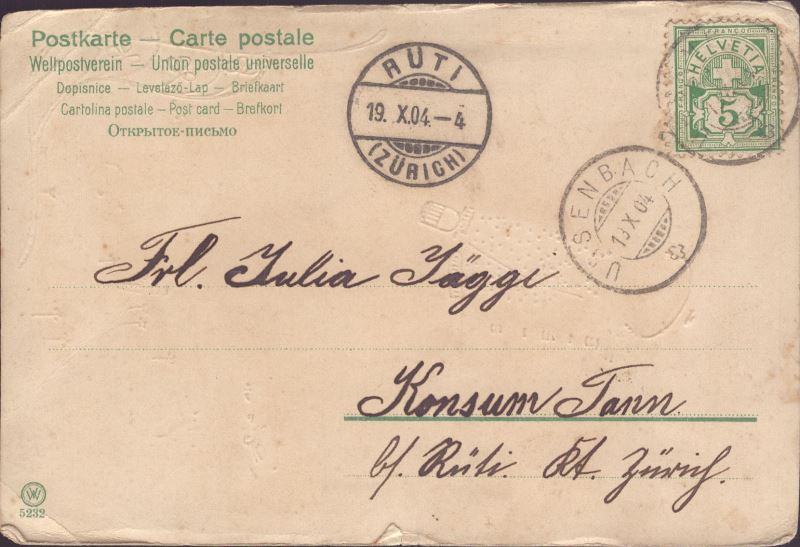 Postkarte — Carte postale
Weltpostverein — Union postale universelle
Dopisnice — Levelező-Lap — Briefkaart
Cartolina postale — Post card — Brefkort
Открытое-письмо
RÜTI
19. X.04.–4
(ZÜRICH)
FRANCO
HELVETIA
FRANCO
FRANCO
5
19 X 04
Frl. Julia Jägge
Konsum Tann
b/. Rüti. Kt. Zürich.
W
5232